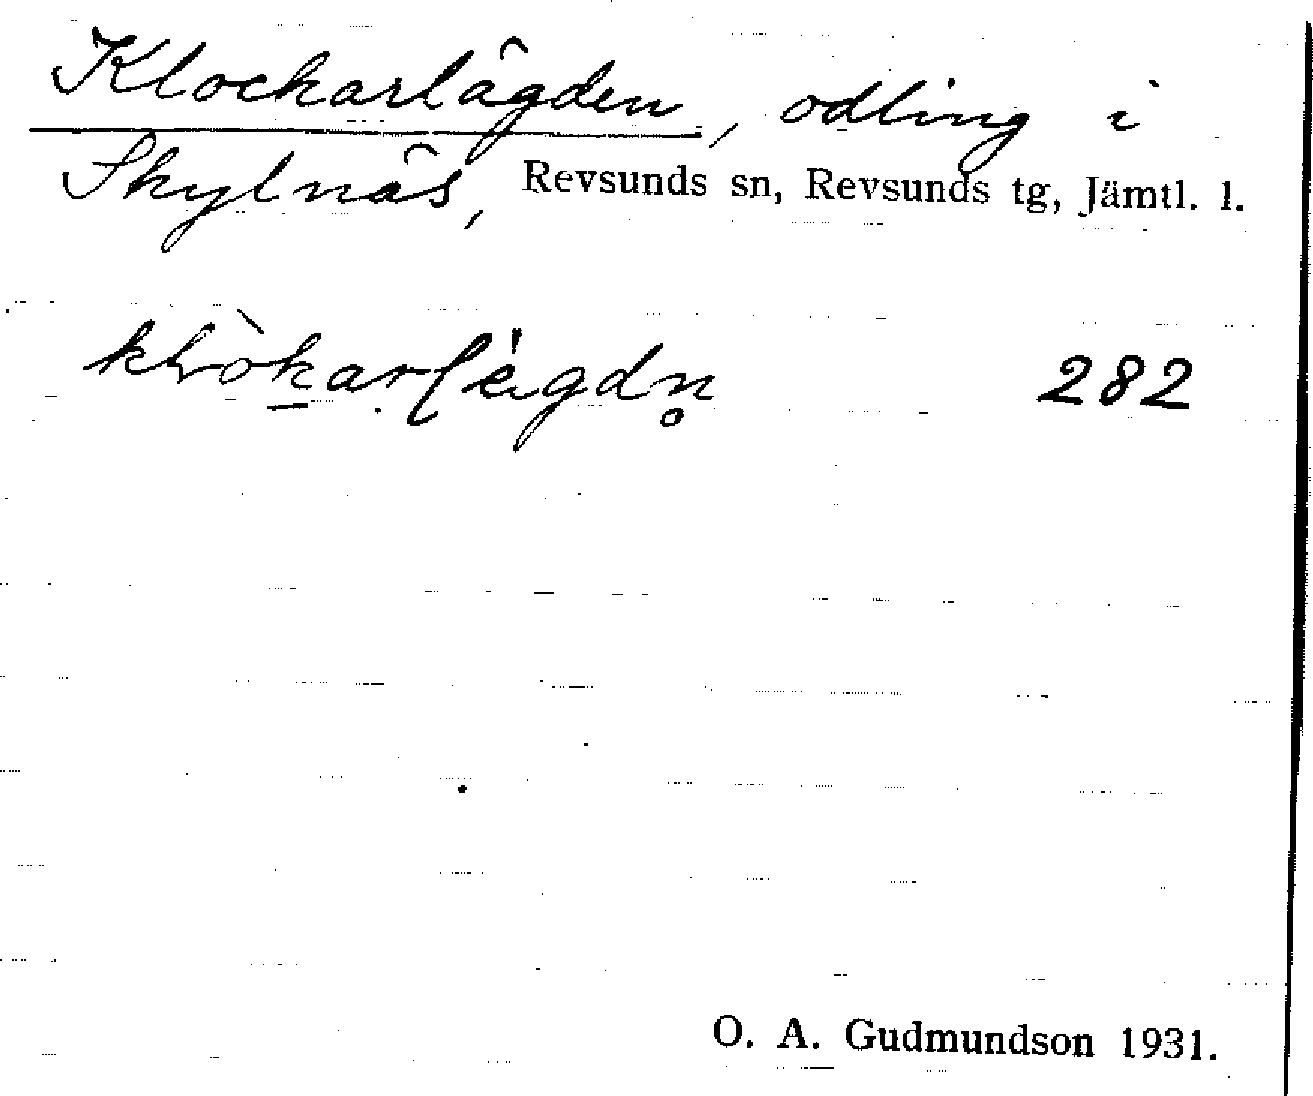 Klockarlägden, odling i
Skylnäs, Revsunds sn, Revsunds tg, Jämtl. l.
282
O. A. Gudmundson 1931.